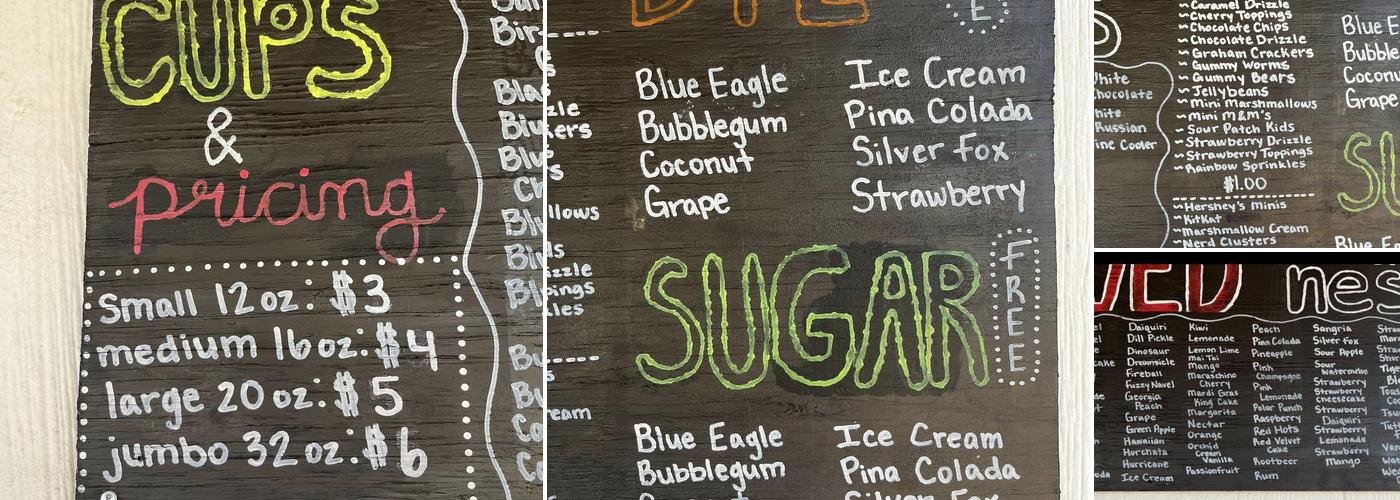 CUPS
&
pricing
Small 12 oz: $3
medium 16 oz: $4
large 20 oz: $5
jumbo 32 oz: $6
DYE
E
Blue Eagle
Bubblegum
Coconut
Grape
Ice Cream
Pina Colada
Silver Fox
Strawberry
SUGAR
FREE
Blue Eagle
Bubblegum
Ice Cream
Pina Colada
Silver Fox
White
Chocolate
White
Russian
Wine Cooler
~Caramel Drizzle
~Cherry Toppings
~Chocolate Chips
~Chocolate Drizzle
~Graham Crackers
~Gummy Worms
~Gummy Bears
~Jellybeans
~Mini Marshmallows
~Mini M&M's
~Sour Patch Kids
~Strawberry Drizzle
~Strawberry Toppings
~Rainbow Sprinkles
$1.00
~Hershey's Minis
~KitKat
~Marshmallow Cream
~Nerd Clusters
Blue E
Bubble
Coconu
Grape
SU
Blue E
VED nes
Daiquiri
Dill Pickle
Dinosaur
Dreamsicle
Fireball
Fuzzy Navel
Georgia
Peach
Grape
Green Apple
Hawaiian
Horchata
Hurricane
Ice Cream
Kiwi
Lemonade
Lemon Lime
Mai Tai
Mango
Maraschino
Cherry
Mardi Gras
King Cake
Margarita
Nectar
Orange
Orchid
Cream
Vanilla
Passionfruit
Peach
Pina Colada
Pineapple
Pink
Champagne
Pink
Lemonade
Polar Punch
Raspberry
Red Hots
Red Velvet
Cake
Rootbeer
Rum
Sangria
Silver Fox
Sour Apple
Sour
Watermelon
Strawberry
Strawberry
Cheesecake
Strawberry
Daiquiri
Strawberry
Lemonade
Strawberry
Mango